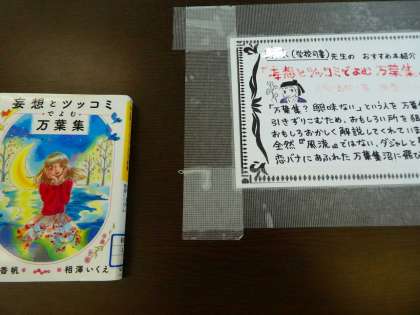 妄想とツッコミ
でよむ
万葉集
香帆
相澤いくえ
(学校司書)先生の おすすめ本紹介
『妄想とツッコミでよむ 万葉集
「万葉集？興味ない」という人を 万葉
引きずりこむため、おもしろい所を
おもしろおかしく 解説してくれてい
全然『風流』ではない、ダジャレと
恋バナにあふれた 万葉集沼に